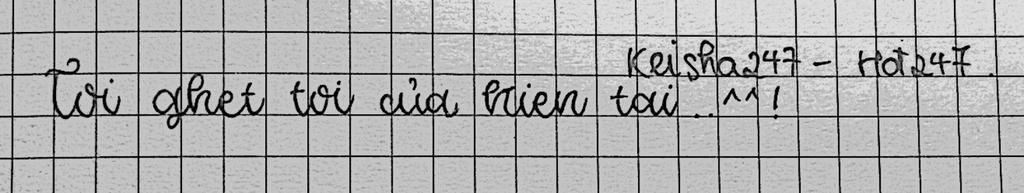 Keisha247 - Hot247.
Toi ghet toi của hien tai..^^!